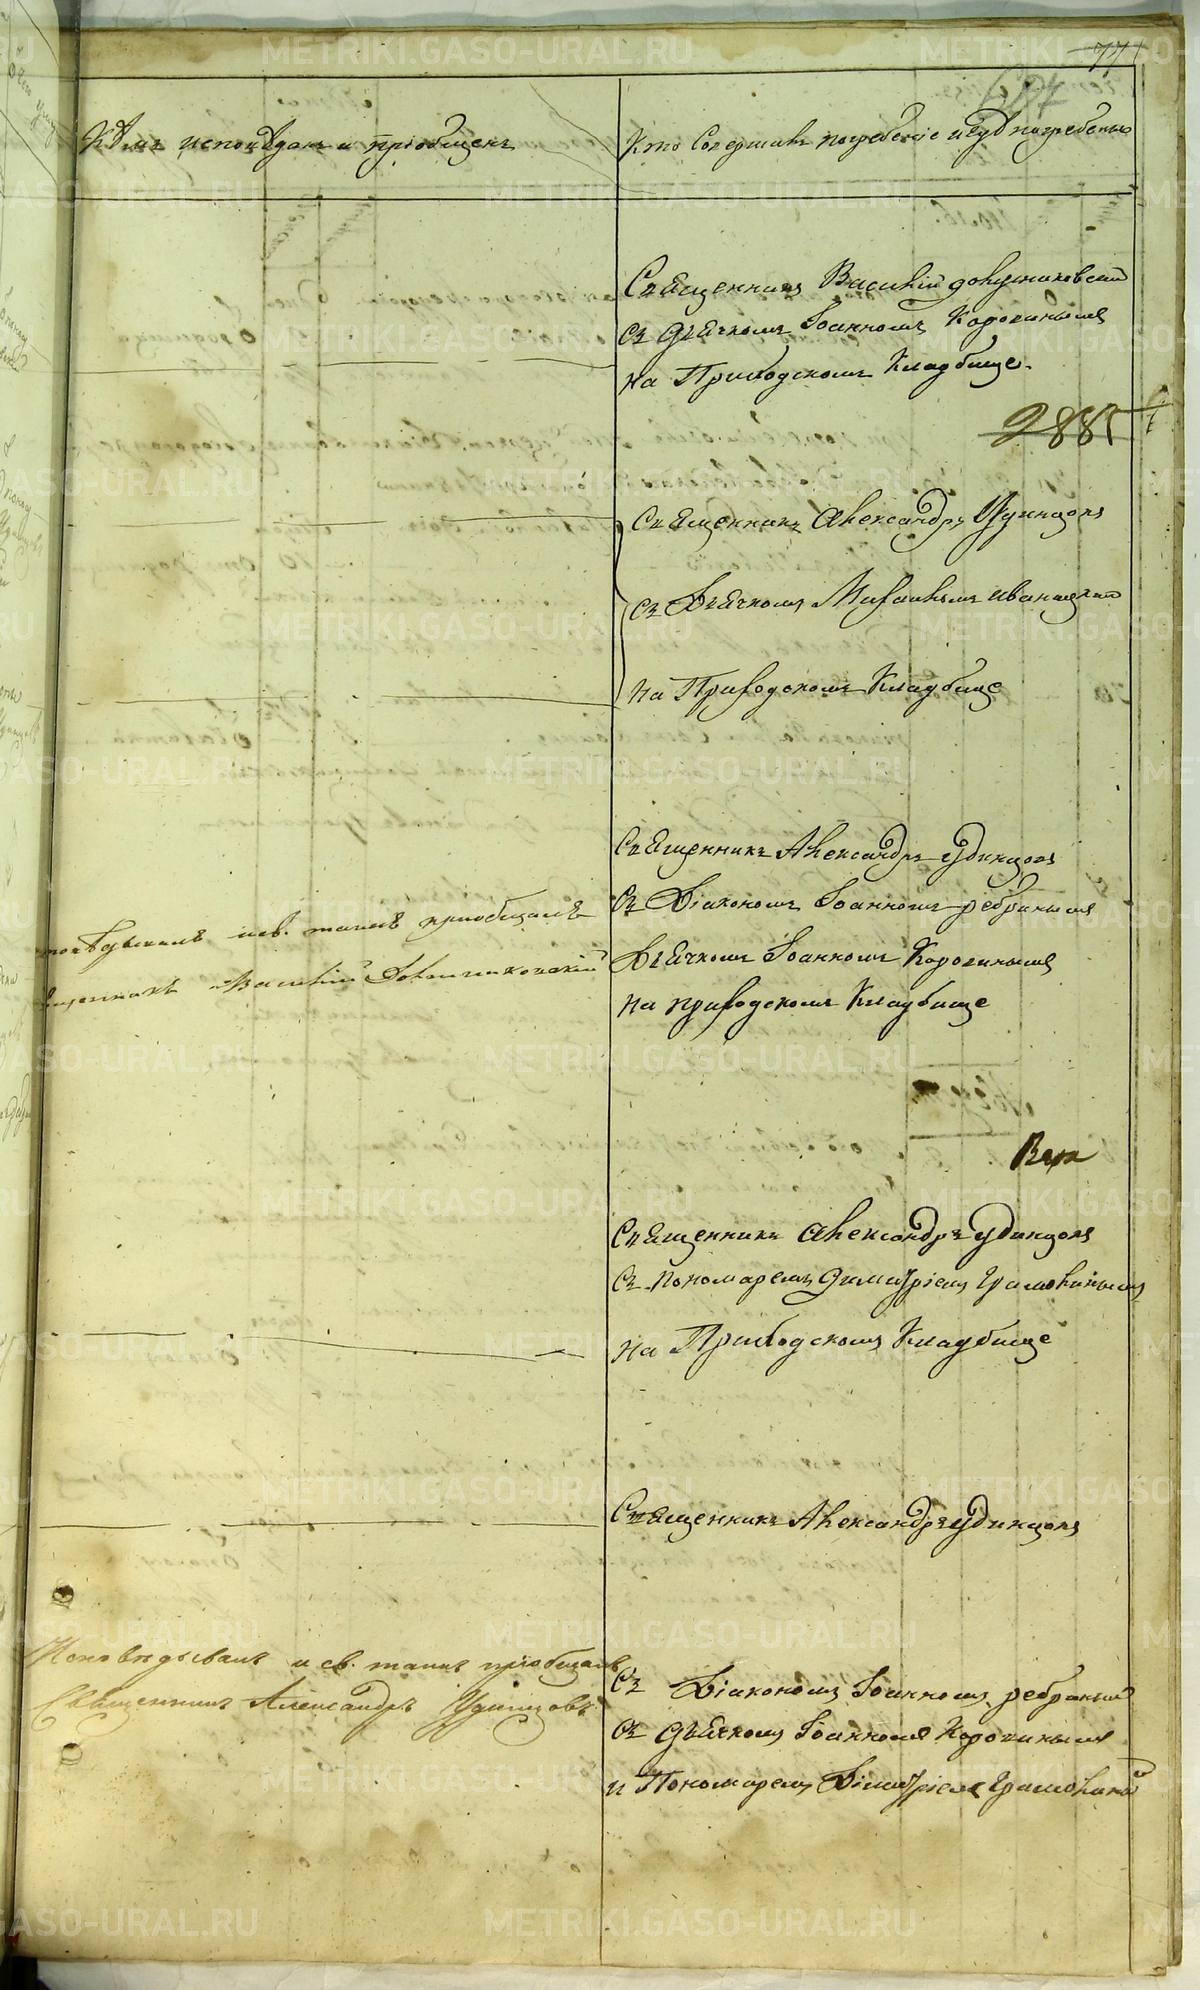 77
Кѣмъ исповѣданъ и пріобщенъ
Кто Совершилъ погребеніе и гдѣ погребены
Священникъ Василій
съ дьячкомъ Іоанномъ Корокинымъ
на Приходскомъ Кладбище.
2885
Священникъ Александръ Удинцовъ
съ Дьячкомъ Михаиломъ Иваницкимъ
на Приходскомъ Кладбище
Священникъ Александръ Удинцовъ
съ Діакономъ Іоанномъ Ребринымъ
Дьячкомъ Іоанномъ Корокинымъ
на приходскомъ Кладбище
и св. таинъ пріобщалъ
Василій
Священникъ Александръ Удинцовъ
съ пономаремъ Димитріемъ
на Приходскомъ Кладбище
Священникъ Александръ Удинцовъ
Исповѣдывалъ и св. таинъ пріобщалъ
Священникъ Александръ Удинцовъ
съ Діакономъ Іоанномъ Ребринымъ
съ дьячкомъ Іоанномъ Корокинымъ
и Пономаремъ Димитріемъ
METRIKI.GASO-URAL.RU